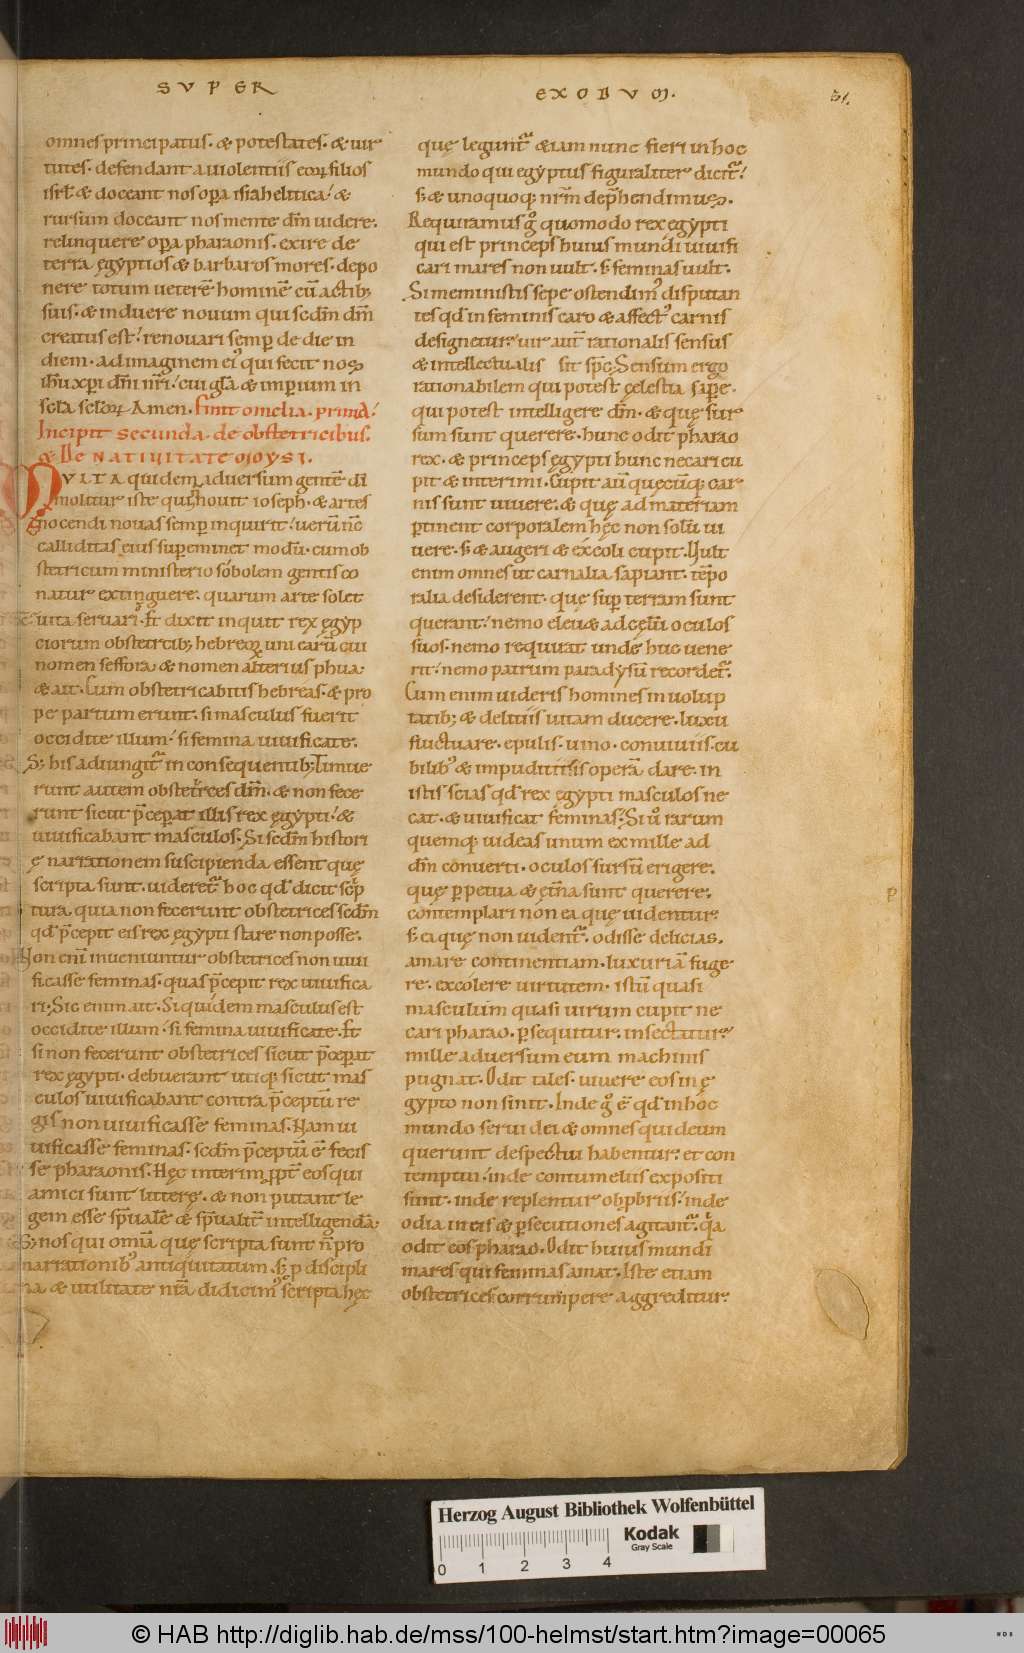 SVPER
EXODVM.
51.
omnes principatus. & potestates. & uir
tutes. defendant a uiolentiis eoꝝ filios
isrł & doceant nos oꝑa isrłahelitica. &
rursum doceant nos mente dm̄ uidere.
relinquere oꝑa pharaonis. exire de
terra ęgyptios & barbaros mores. depo
nere totum ueterē hominē cū actib;
suis. & induere nouum qui scdm̄ dm̄
creatus est. renouari semꝑ de die in
diem. ad imaginem ei᷒ qui fecit nos
ih̄u xp̄i dm̄ nr̄i. cui gła & imꝑium in
scła scłoꝝ Amen. Finit omelia. prima.
Incipit secunda. de obstetricibus.
& DE NATIVITATE MOYSI.
MVLTA quidem aduersum gentē dī
molitur iste qui n̄ nouit ioseph. & artes
nocendi nouas semꝑ inquirit. uerū nc̄
calliditas eius suꝑeminet modū. cum ob
stetricum ministerio sobolem gentis co
natur extinguere. quarum arte solet
uita seruari. Et dixit inquit rex ęgyp
ciorum obstetricib; hebreoꝝ uni earū cui
nomen seffora & nomen alterius phua.
& ait. Cum obstetricabitis hebreas. & pro
pe partum erunt. si masculus fuerit
occidite illum. si femina uiuificate.
S; his adiungit᷑ in consequentib; Timue
runt autem obstetrices dm̄. & non fece
runt sicut p̄ceperat illis rex ęgypti. &
uiuificabant masculos. Si scdm̄ histori
ę narrationem suscipienda essent quę
scripta sunt. uideret᷑ hoc qd̄ dicit scrip
tura. quia non fecerunt obstetrices scdm̄
qd̄ p̄cepit eis rex ęgypti stare non posse.
Non enī inueniuntur obstetrices non uiui
ficasse feminas. quas p̄cepit rex uiuifica
ri. Sic enim ait. Siquidem masculus est
occidite illum. si femina uiuificate. Et
si non fecerunt obstetrices sicut p̄ceꝑat
rex ęgypti. debuerant utiq; sicut mas
culos uiuificabant contra p̄ceptū re
gis non uiuificasse feminas. Nam ui
uificasse feminas. scdm̄ p̄ceptū ē fecis
se pharaonis. Hęc interim ꝓpt̄ eos qui
amici sunt litterę. & non putant le
gem esse sp̄ualē & sp̄ualit̄ intelligendā.
S; nos qui omīa quę scripta sunt n̄ pro
narrationib᷒ antiquitatum s; ꝓ discipli
na & utilitate nr̄a didicim᷒ scripta hęc
quę legunt᷑ etiam nunc fieri in hoc
mundo qui egyptus figuraliter dicit᷑.
s; & unoquoq; nr̄m dep̄hendimus.
Requiramus g̊ quomodo rex egypti
qui est princeps huius mundi uiuifi
cari mares non uult. s; feminas uult.
Si meministis sepe ostendim᷒ disputan
tes qd̄ in feminis caro & affect᷒ carnis
designetur. uir aut̄ rationalis sensus
& intellectualis sit sp̄c. Sensum ergo
rationabilem qui potest cęlestia saꝑe.
qui potest intelligere dm̄. & quę sur
sum sunt querere. hunc odit pharao
rex. & princeps ęgypti hunc necari cu
pit & interimi. Cupit aū quęcūq; car
nis sunt uiuere. & quę ad materiam
ꝑtinent corporalem hęc non solū ui
uere. s; & augeri & excoli cupit. Uult
enim omnes ut carnalia sapiant. tēpo
ralia desiderent. quę suꝑ terram sunt
querant. nemo eleuet ad cęlū oculos
suos. nemo requirat unde huc uene
rit. nemo patriam paradysū recordet᷑.
Cum enim uideris homines in uolup
tatib; & delitiis uitam ducere. luxu
fluctuare. epulis. uino. conuiuiis. cu
bilib᷒ & impuditiis operā dare. in
istis scias qd̄ rex ęgypti masculos ne
cat. & uiuificat feminas. Si ů rarum
quemq; uideas unum ex mille ad
dm̄ conuerti. oculos sursū erigere.
quę ꝑpetua & ęt̄na sunt querere.
contemplari non ea quę uidentur.
s; ea quę non uident᷑. odisse delicias.
amare continentiam. luxuriā fuge
re. excolere uirtutem. istū quasi
masculum quasi uirum cupit ne
cari pharao. ꝑsequitur. insectatur.
mille aduersum eum machinis
pugnat. Odit tales. uiuere eos in ę
gypto non sinit. Inde g̊ ē qd̄ in hoc
mundo serui dei & omnes qui deum
querunt despectui habentur. et con
temptui. inde contumeliis expositi
sunt. inde replentur obꝓbriis. inde
odia in eis & ꝑsecutiones agitant᷑. qa
odit eos pharao. Odit huius mundi
mares qui feminas amat. Iste etiam
obstetrices corrumpere aggreditur.
Herzog August Bibliothek Wolfenbüttel
Kodak
Gray Scale
0 1 2 3 4
© HAB http://diglib.hab.de/mss/100-helmst/start.htm?image=00065